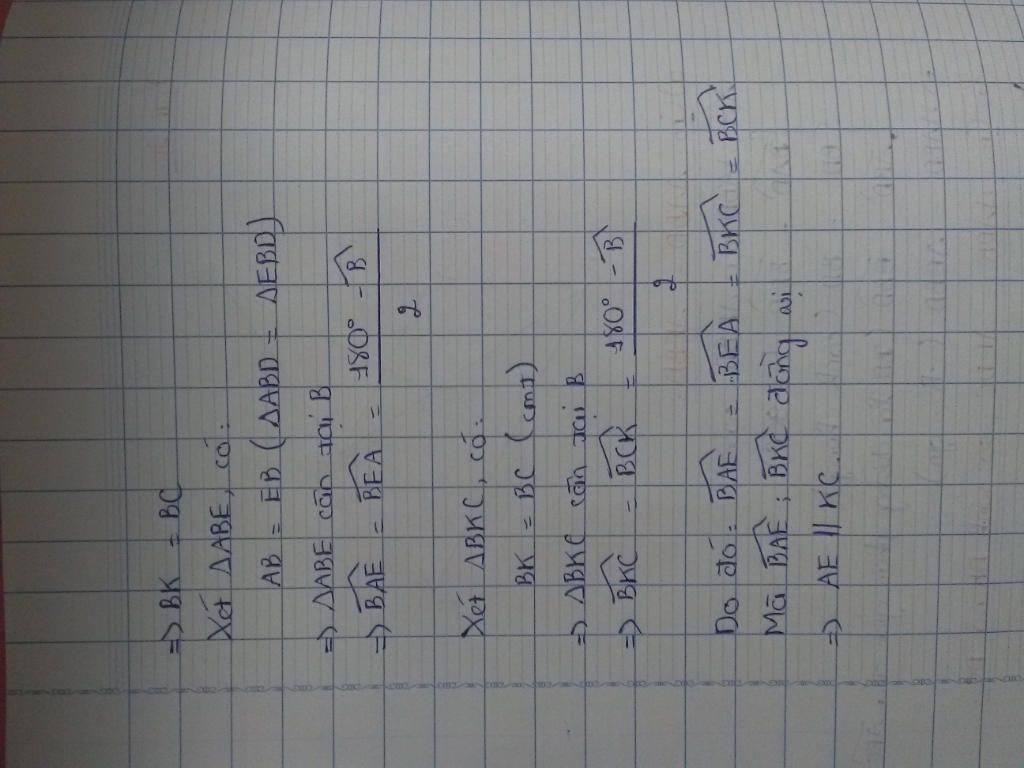 => BK = BC
Xét ΔABE, có:
AB = EB (ΔABD = ΔEBD)
=> ΔABE cân tại B
=> \widehat{BAE} = \widehat{BEA} = \frac{180° - \widehat{B}}{2}
Xét ΔBKC, có:
BK = BC (cmt)
=> ΔBKC cân tại B
=> \widehat{BKC} = \widehat{BCK} = \frac{180° - \widehat{B}}{2}
Do đó: \widehat{BAE} = \widehat{BEA} = \widehat{BKC} = \widehat{BCK}
Mà \widehat{BAE} ; \widehat{BKC} đồng vị
=> AE || KC